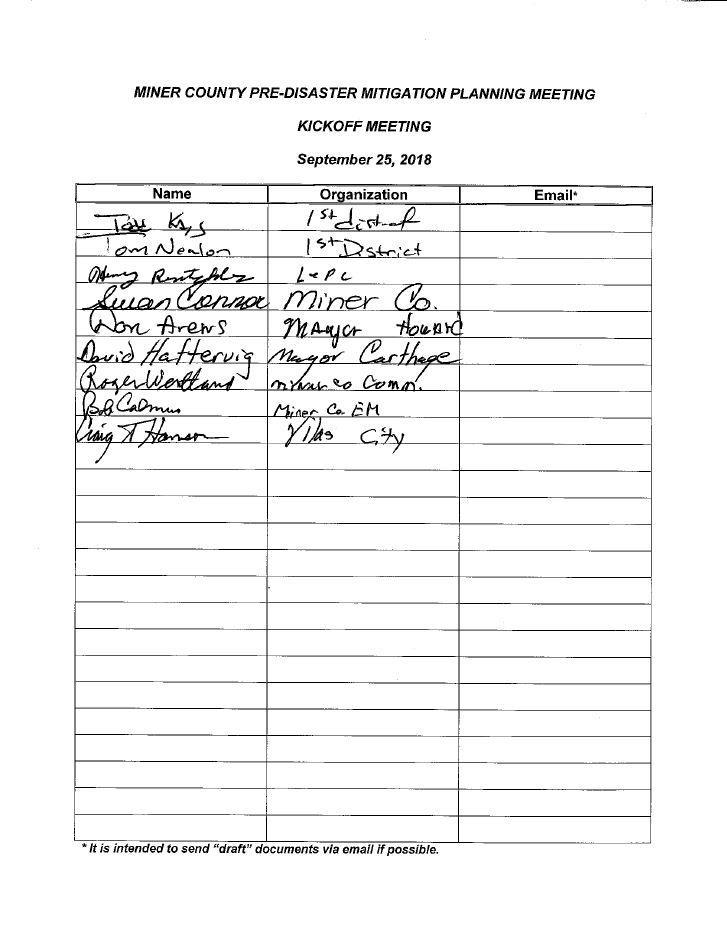 MINER COUNTY PRE-DISASTER MITIGATION PLANNING MEETING
KICKOFF MEETING
September 25, 2018
Name Organization Email*
1st district
Tom Nealon 1st District
Henry LEPC
Susan Connor Miner Co.
Don Arens Mayor Howard
David Hattervig Mayor Carthage
Roger Wertland Miner co Comm.
Bob Calmus Miner Co EM
Craig T Hanson Vilas City
* It is intended to send "draft" documents via email if possible.